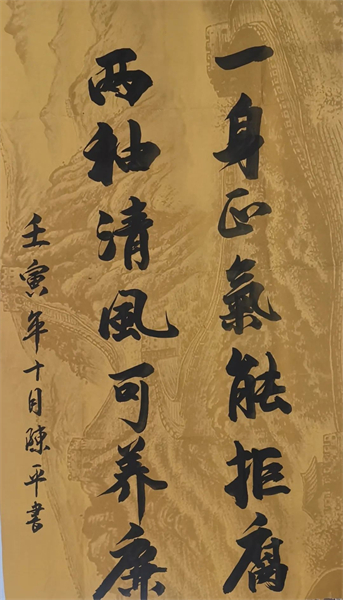 一身正氣能拒腐
两袖清風可养廉
壬寅年十月陳平書